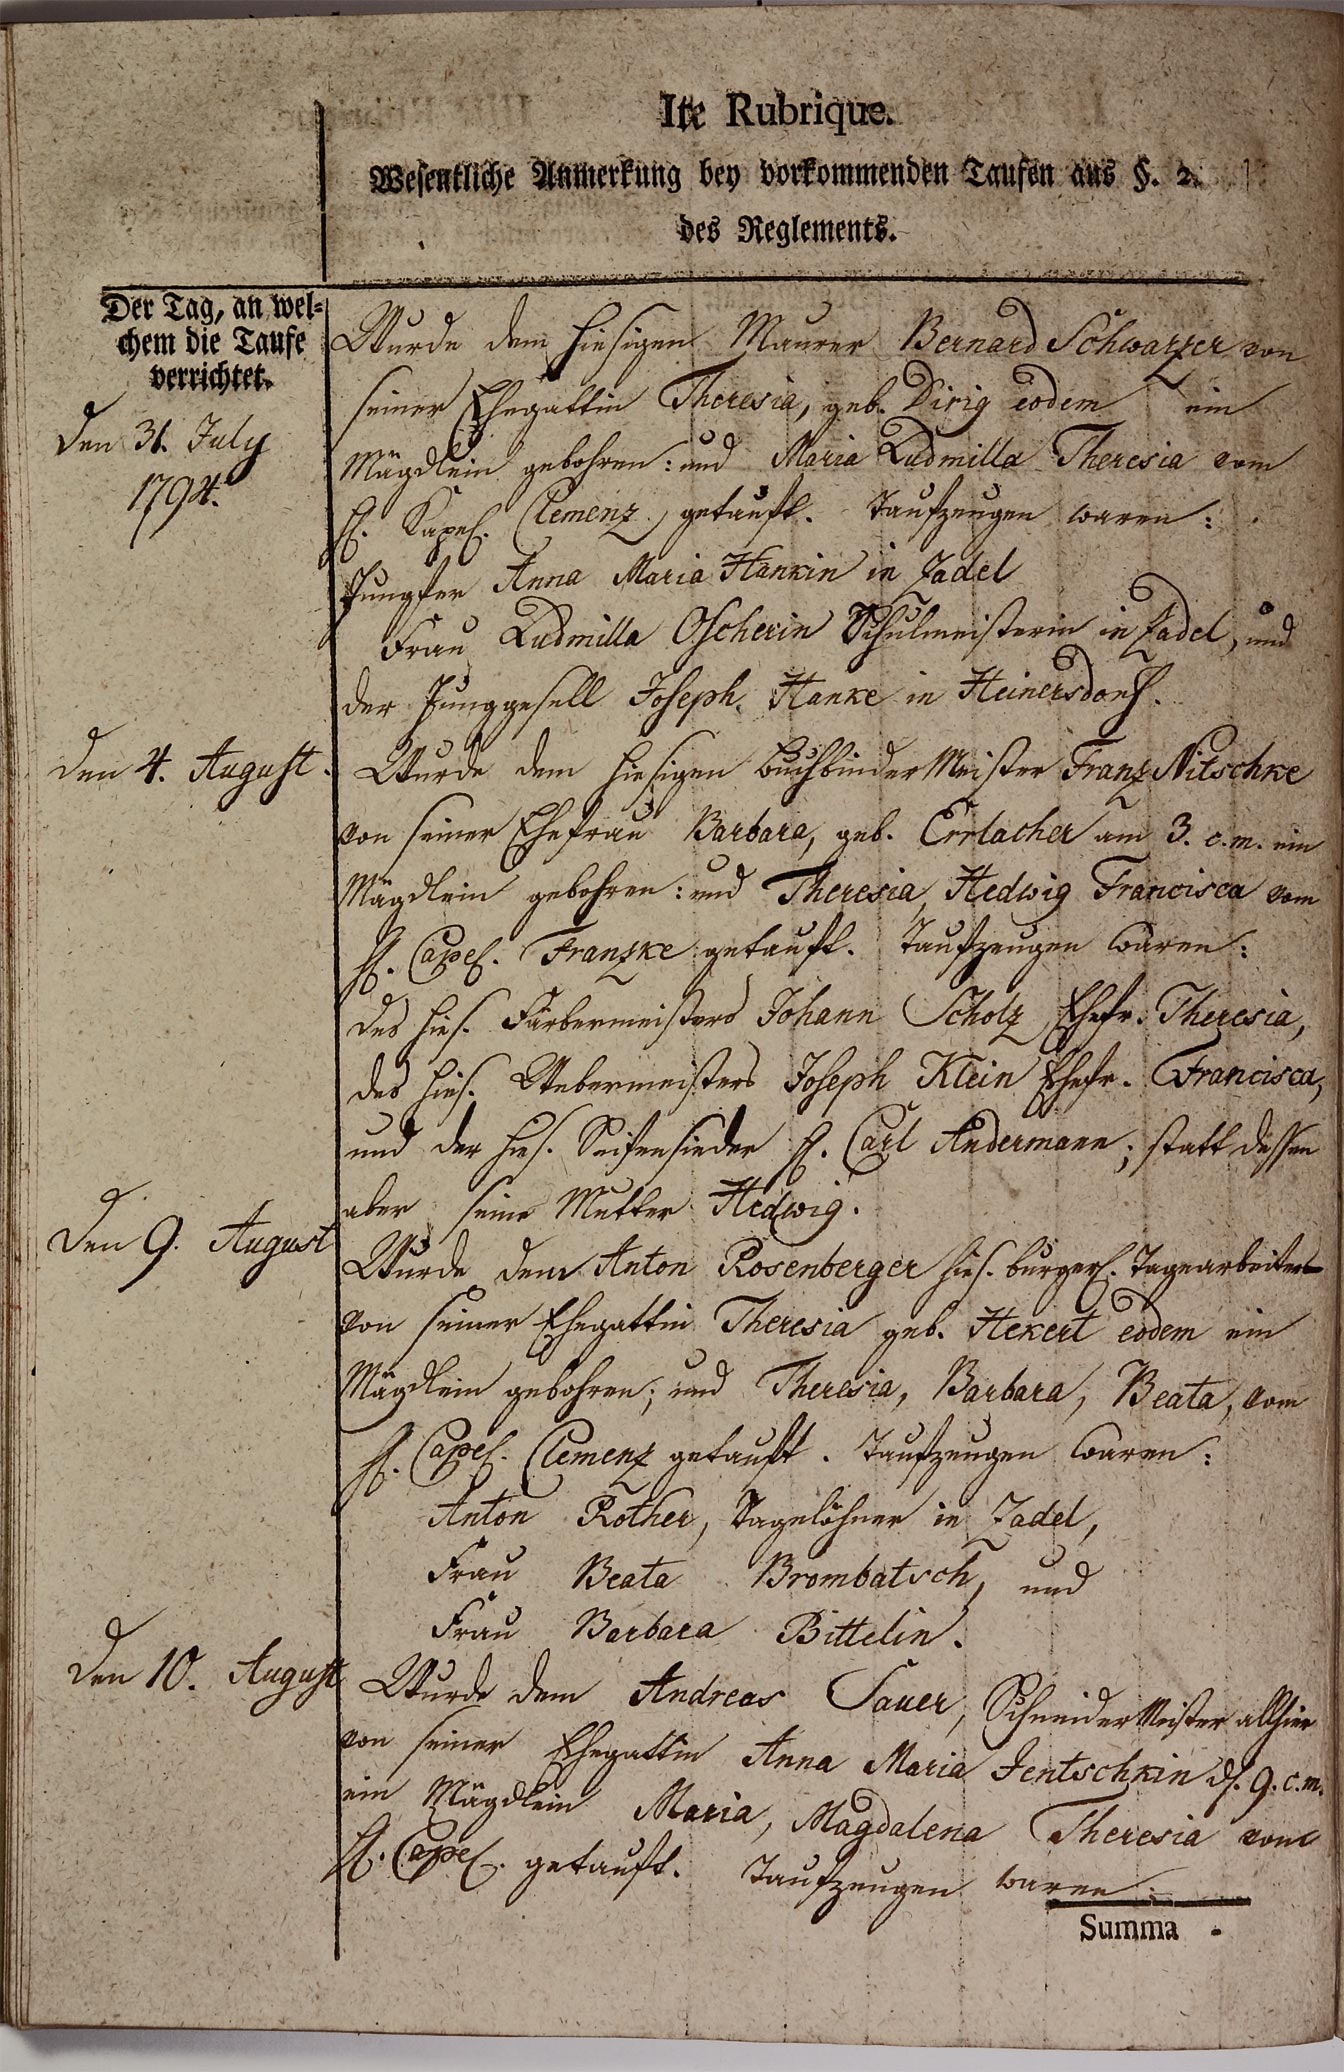 Ite Rubrique.
Wesentliche Anmerkung bey vorkommenden Taufen aus §. 2.
des Reglements.
Der Tag, an wel-
chem die Taufe
verrichtet.
Den 31. July
1794.
Wurde dem hiesigen Maurer Bernard Schwarzer von
seiner Ehegattin Theresia, geb. Dirig eodem ein
Mägdlein gebohren: und Maria Ludmilla Theresia vom
H. Kapel. Clemenz getauft. Taufzeugen waren:
Jungfer Anna Maria Hankin in Zadel
Frau Ludmilla Oscherin Schulmeisterin in Zadel, und
der Junggesell Joseph Hanke in Heinersdorf.
Den 4. August.
Wurde dem hiesigen Buchbinder Meister Franz Nitschke
von seiner Ehefrau Barbara, geb. Errlacher am 3. c. m. ein
Mägdlein gebohren: und Theresia, Hedwig Francisca vom
H. Capel. Franzke getauft. Taufzeugen waren:
des hies. Färbermeisters Johann Scholz Ehefr. Theresia,
des hies. Webermeisters Joseph Klein Ehefr. Francisca,
und der hies. Seifensieder H. Carl Andermann; statt dessen
aber seine Mutter Hedwig.
Den 9. August
Wurde dem Anton Rosenberger hies. burgerl. Tagearbeiter
von seiner Ehegattin Theresia geb. Hekert eodem ein
Mägdlein gebohren; und Theresia, Barbara, Beata, vom
H. Capel. Clemenz getauft. Taufzeugen waren:
Anton Rother, Tagelöhner in Zadel,
Frau Beata Brombatsch, und
Frau Barbara Bittelin.
Den 10. August
Wurde dem Andreas Sauer, Schneider Meister allhier
von seiner Ehegattin Anna Maria Jentschkin d. 9. c. m.
ein Mägdlein Maria, Magdalena Theresia vom
H. Capel. getauft. Taufzeugen waren:
Summa -